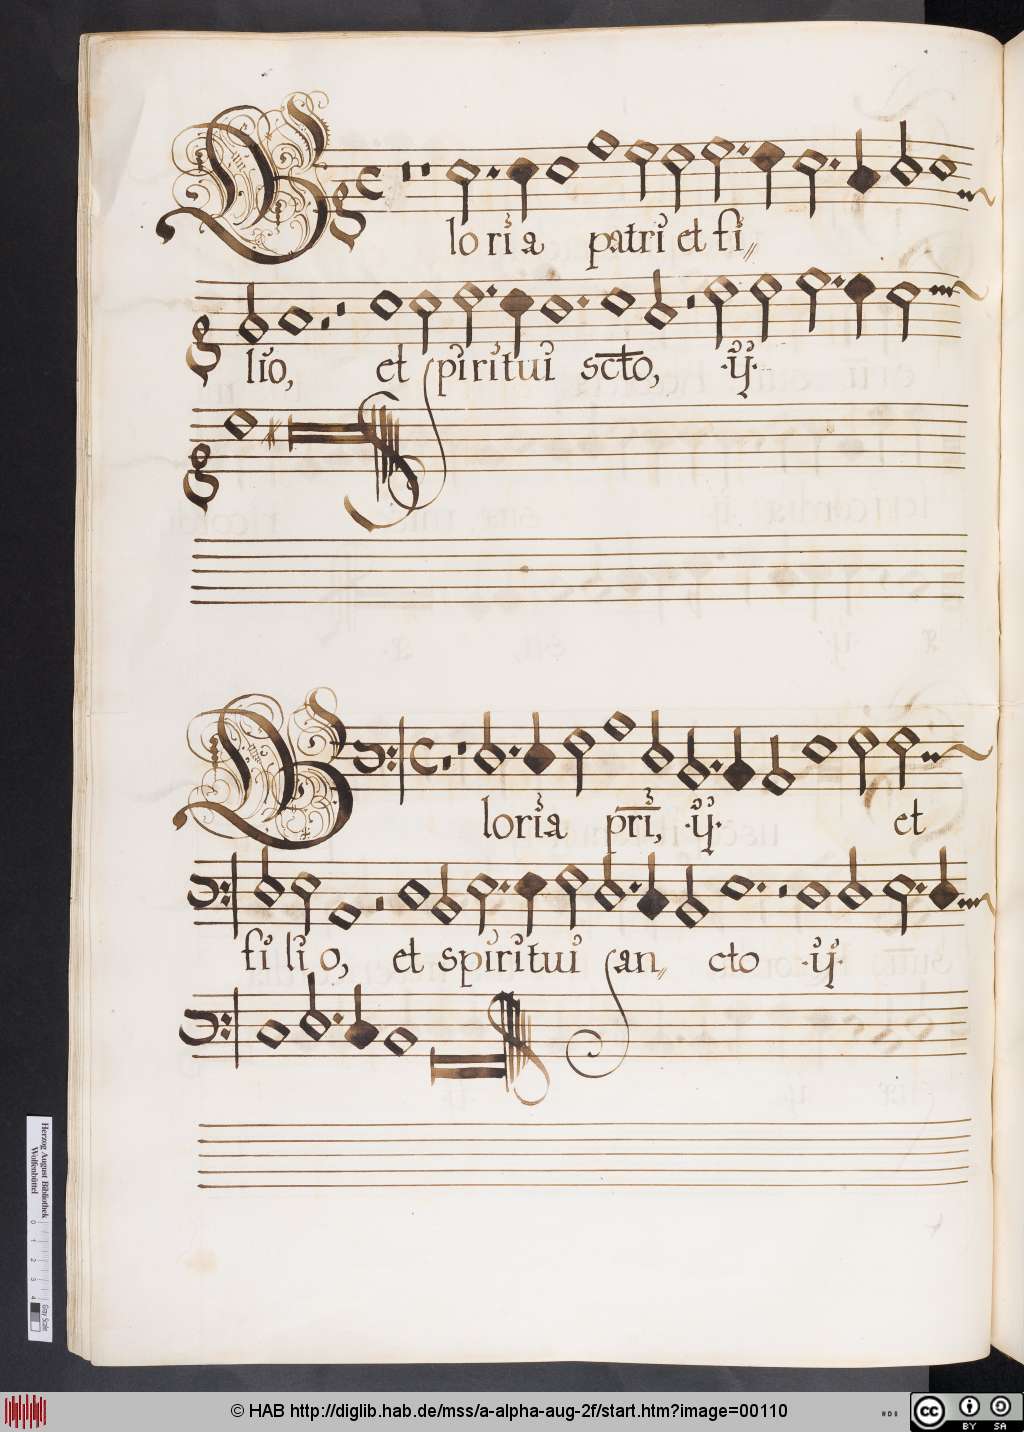 Gloria patri et fi
lio, et spiritui scto, ·ij·
Gloria pri, ·ij· et
fi li o, et spiritui san cto ·ij·
Herzog August Bibliothek
Wolfenbüttel
0 1 2 3 4
Gray Scale
© HAB http://diglib.hab.de/mss/a-alpha-aug-2f/start.htm?image=00110
cc BY SA